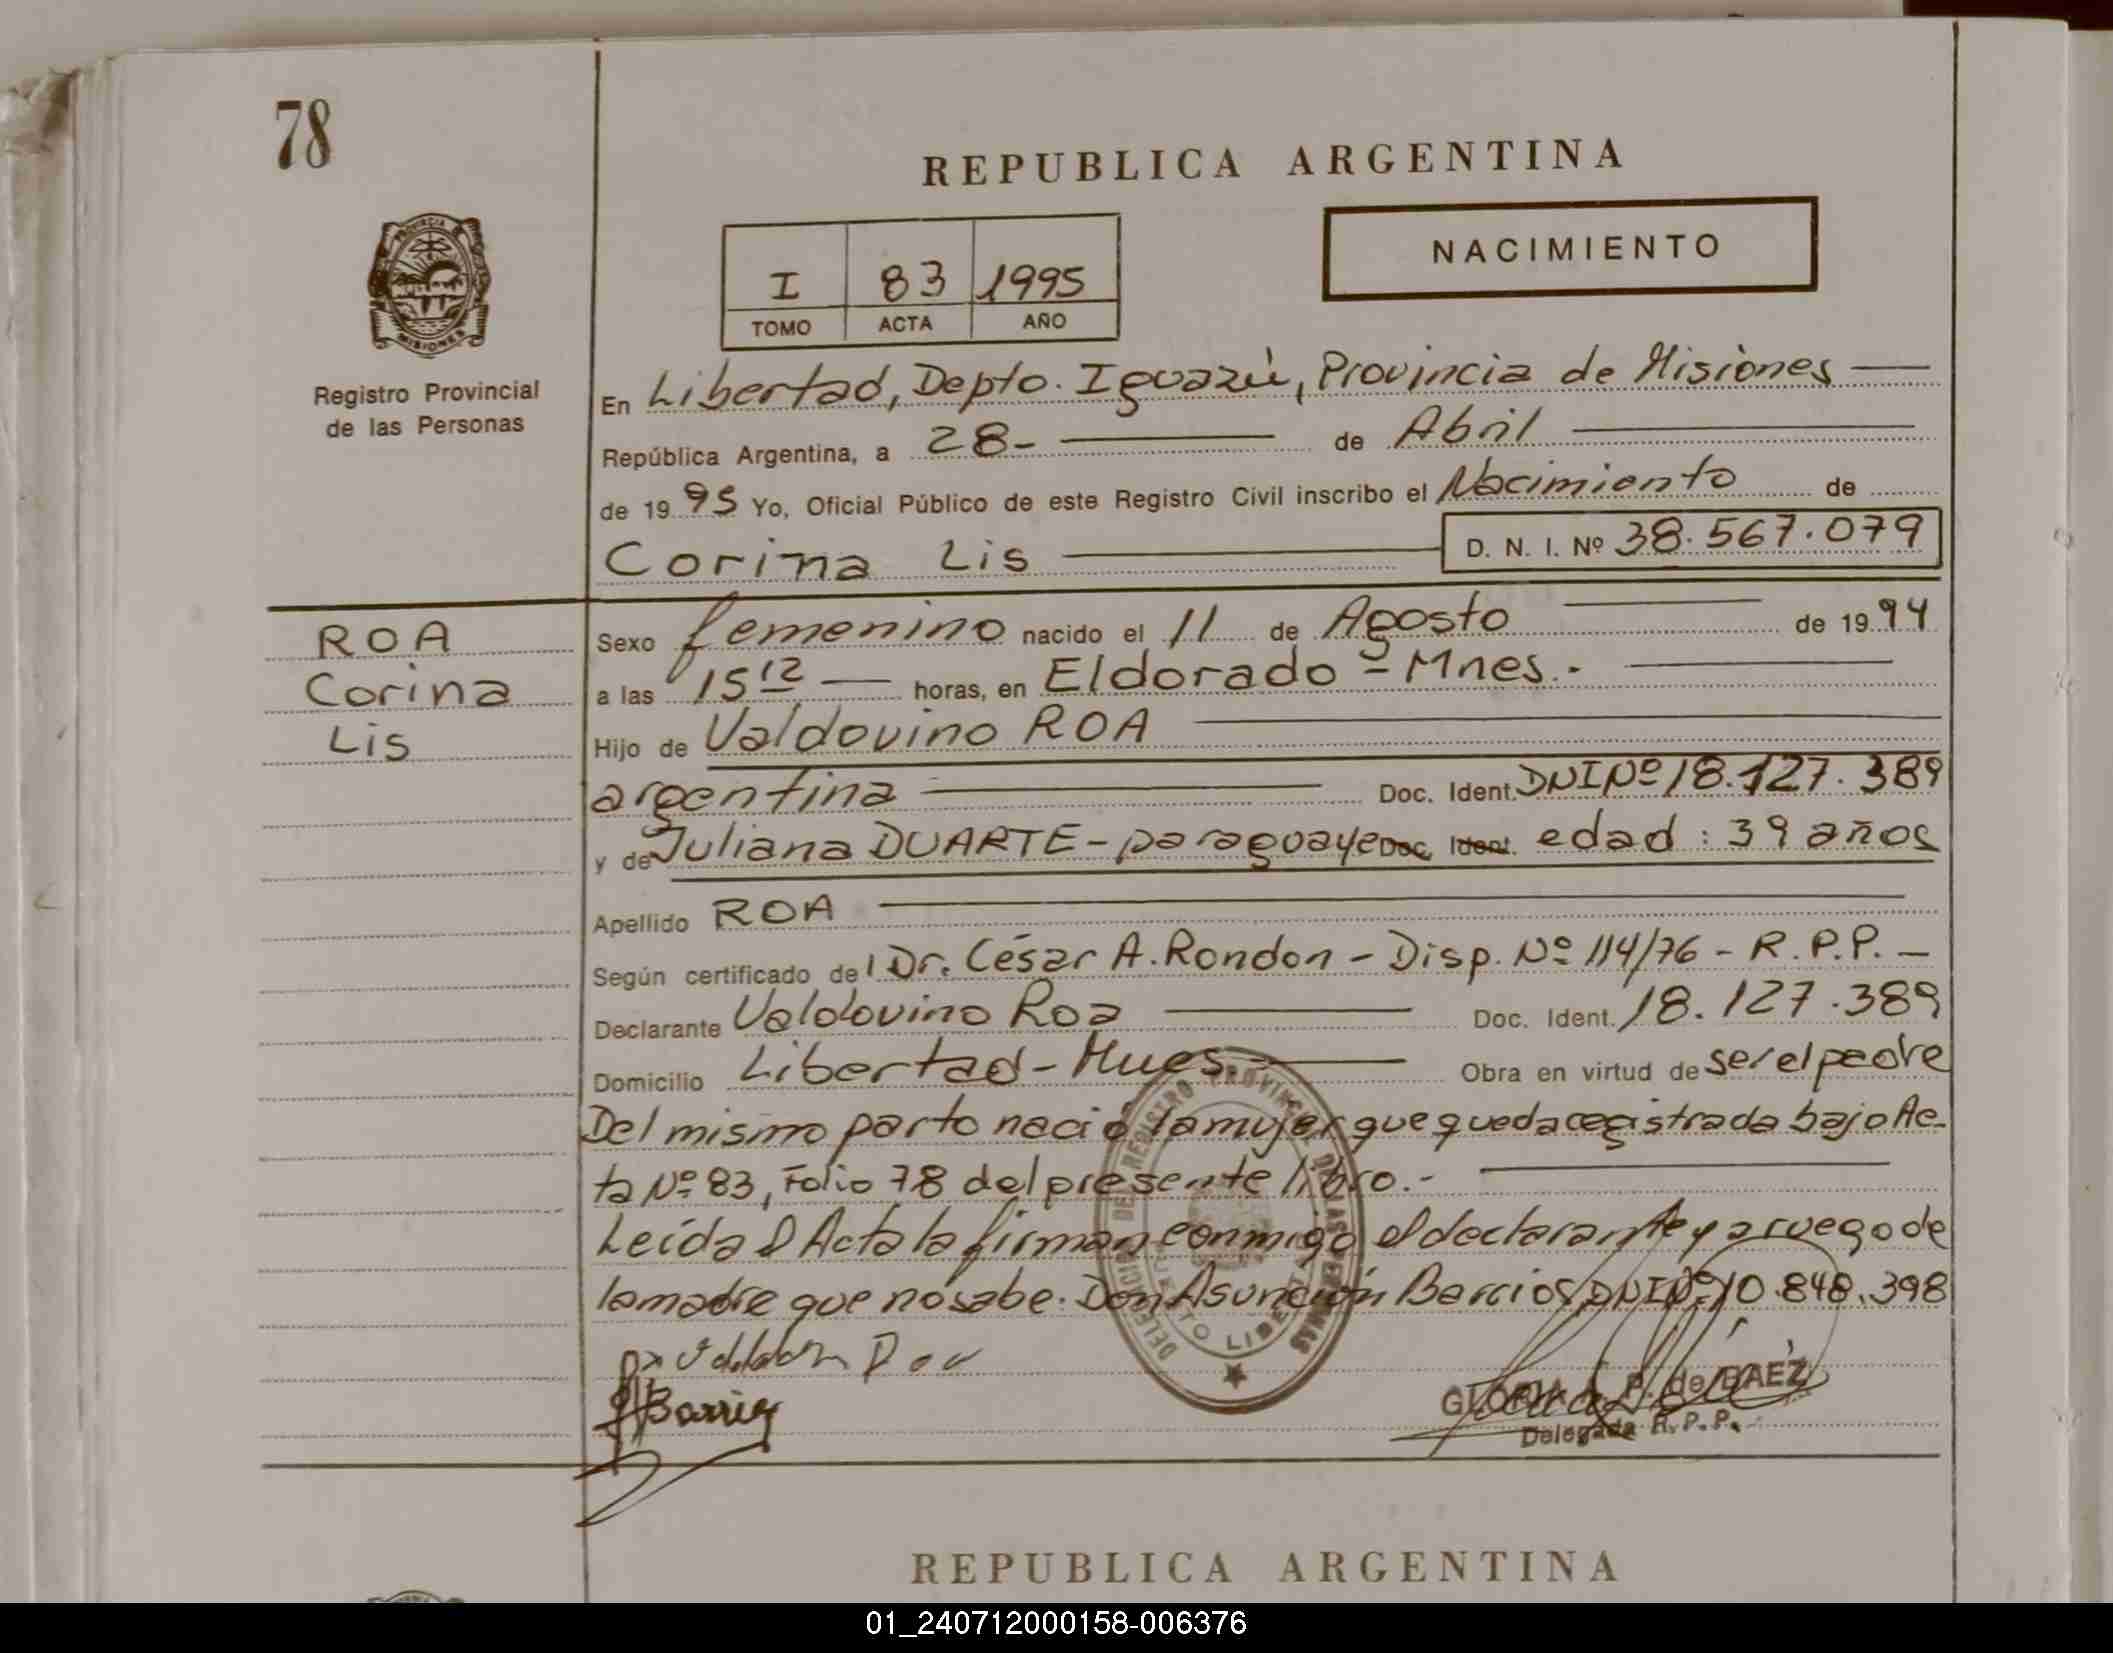 78
REPUBLICA ARGENTINA
PROVINCIA DE MISIONES
Registro Provincial
de las Personas
I 83 1995
TOMO ACTA AÑO
NACIMIENTO
En Libertad, Depto. Iguazú, Provincia de Misiones
República Argentina, a 28- de Abril
de 1995 Yo, Oficial Público de este Registro Civil inscribo el Nacimiento de
Corina Lis D. N. I. Nº 38.567.079
ROA
Corina
Lis
Sexo femenino nacido el 11 de Agosto de 1994
a las 15 12 horas, en Eldorado - Mnes.-
Hijo de Valdovino ROA
argentina Doc. Ident. DNI Nº 18.127.389
y de Juliana DUARTE - paraguaya Doc. Ident. edad: 39 años
Apellido ROA
Según certificado del Dr. César A. Rondon - Disp. Nº 114/76 - R.P.P. -
Declarante Valdovino Roa Doc. Ident. 18.127.389
Domicilio Libertad - Mnes - Obra en virtud de ser el padre
Del mismo parto nació la mujer que queda registrada bajo Ac-
ta Nº 83, Folio 78 del presente libro.-
Leída el Acta la firman conmigo el declarante y a ruego de
la madre que no sabe. Don Asunción Barrios DNI Nº 10.848.398
Barrios
DELEGACION DEL REGISTRO PROVINCIAL DE LAS PERSONAS
PUERTO LIBERTAD
GLORIA P. de BAEZ
Delegada R.P.P.
REPUBLICA ARGENTINA
01_240712000158-006376